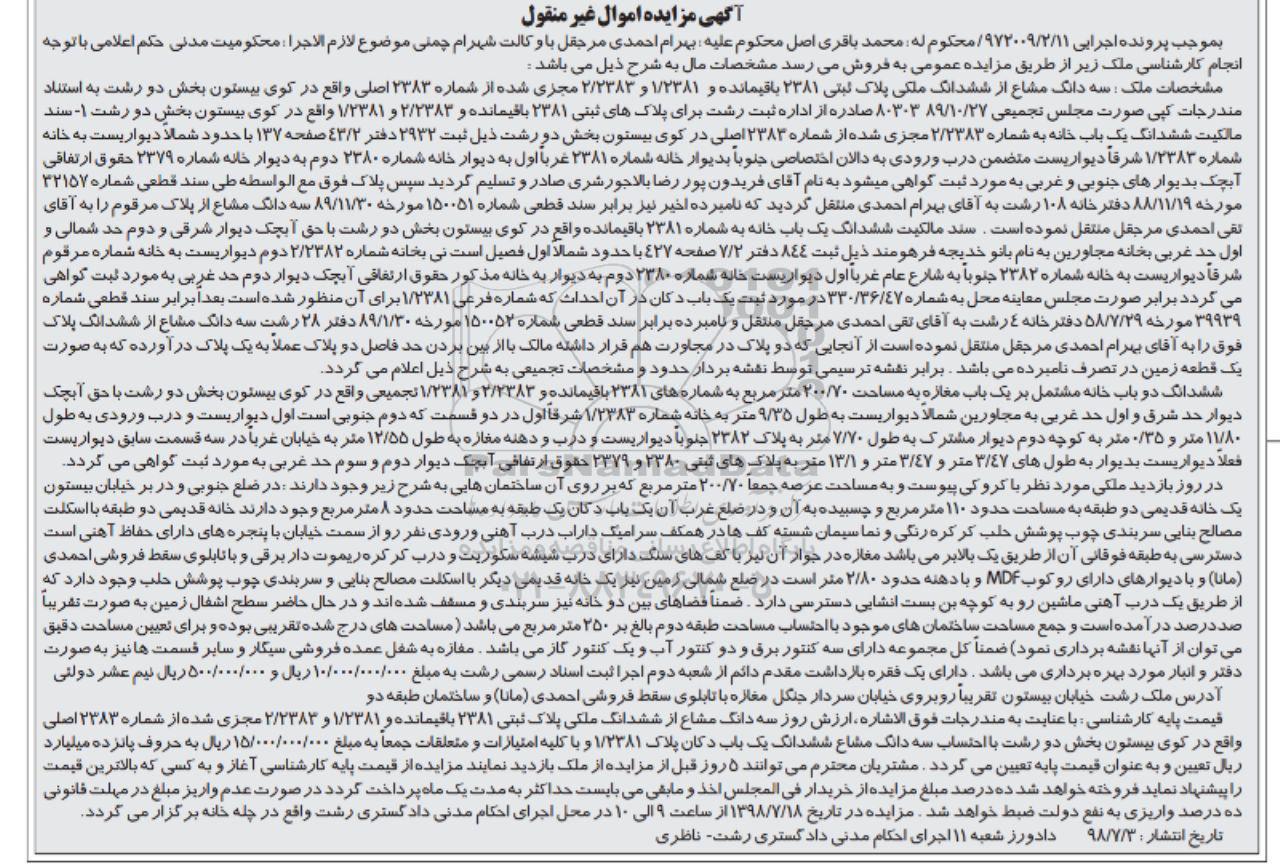 آگهی مزایده اموال غیر منقول
بموجب پرونده اجرایی ۹۷۲۰۰۹/۲/۱۱/ محکوم له: محمد باقری اصل محکوم علیه: بهرام احمدی مرجقل با وکالت شهرام چمنی موضوع لازم الاجرا: محکومیت مدنی حکم اعلامی با توجه
انجام کارشناسی ملک زیر از طریق مزایده عمومی به فروش می رسد مشخصات مال به شرح ذیل می باشد :
مشخصات ملک : سه دانگ مشاع از ششدانگ ملکی پلاک ثبتی ۲۳۸۱ باقیمانده و ۱/۲۳۸۱ و ۲/۲۳۸۳ مجزی شده از شماره ۲۳۸۳ اصلی واقع در کوی بیستون بخش دو رشت به استناد
مندرجات کپی صورت مجلس تجمیعی ۸۹/۱۰/۲۷ ۸۰۳۰۳ صادره از اداره ثبت رشت برای پلاک های ثبتی ۲۳۸۱ باقیمانده و ۲/۲۳۸۳ و ۱/۲۳۸۱ واقع در کوی بیستون بخش دو رشت ۱-سند
مالکیت ششدانگ یک باب خانه به شماره ۲/۲۳۸۳ مجزی شده از شماره ۲۳۸۳ اصلی در کوی بیستون بخش دو رشت ذیل ثبت ۲۹۳۲ دفتر ۴۳/۲ صفحه ۱۳۷ با حدود شمالاً دیواریست به خانه
شماره ۱/۲۳۸۳ شرقاً دیواریست متضمن درب ورودی به دالان اختصاصی جنوباً بدیوار خانه شماره ۲۳۸۱ غرباً اول به دیوار خانه شماره ۲۳۸۰ دوم به دیوار خانه شماره ۲۳۷۹ حقوق ارتفاقی
آبچک بدیوار های جنوبی و غربی به مورد ثبت گواهی میشود به نام آقای فریدون پور رضا بالاجورشری صادر و تسلیم گردید سپس پلاک فوق مع الواسطه طی سند قطعی شماره ۳۲۱۵۷
مورخه ۸۸/۱۱/۱۹ دفترخانه ۱۰۸ رشت به آقای بهرام احمدی منتقل گردید که نامبرده اخیر نیز برابر سند قطعی شماره ۱۵۰۰۵۱ مورخه ۸۹/۱۱/۳۰ سه دانگ مشاع از پلاک مرقوم را به آقای
تقی احمدی مرجقل منتقل نموده است . سند مالکیت ششدانگ یک باب خانه به شماره ۲۳۸۱ باقیمانده واقع در کوی بیستون بخش دو رشت با حق آبچک دیوار شرقی و دوم حد شمالی و
اول حد غربی بخانه مجاورین به نام بانو خدیجه فرهومند ذیل ثبت ۸۴۴ دفتر ۷/۲ صفحه ۴۲۷ با حدود شمالاً اول فصیل است نی بخانه شماره ۲/۲۳۸۲ دوم دیواریست به خانه شماره مرقوم
شرقاً دیواریست به خانه شماره ۲۳۸۲ جنوباً به شارع عام غرباً اول دیواریست خانه شماره ۲۳۸۰ دوم به دیوار به خانه مذکور حقوق ارتفاقی آبچک دیوار دوم حد غربی به مورد ثبت گواهی
می گردد برابر صورت مجلس معاینه محل به شماره ۳۳۰/۳۶/۴۷ در مورد ثبت یک باب دکان در آن احداث که شماره فرعی ۱/۲۳۸۱ برای آن منظور شده است بعداً برابر سند قطعی شماره
۳۹۹۳۹ مورخه ۵۸/۷/۲۹ دفترخانه ۴ رشت به آقای تقی احمدی مرجقل منتقل و نامبرده برابر سند قطعی شماره ۱۵۰۰۵۲ مورخه ۸۹/۱/۳۰ دفتر ۲۸ رشت سه دانگ مشاع از ششدانگ پلاک
فوق را به آقای بهرام احمدی مرجقل منتقل نموده است از آنجایی که دو پلاک در مجاورت هم قرار داشته مالک با از بین بردن حد فاصل دو پلاک عملاً به یک پلاک در آورده که به صورت
یک قطعه زمین در تصرف نامبرده می باشد . برابر نقشه ترسیمی توسط نقشه بردار حدود و مشخصات تجمیعی به شرح ذیل اعلام می گردد.
ششدانگ دو باب خانه مشتمل بر یک باب مغازه به مساحت ۲۰۰/۷۰ متر مربع به شماره های ۲۳۸۱ باقیمانده و ۲/۲۳۸۳ و ۱/۲۳۸۱ تجمیعی واقع در کوی بیستون بخش دو رشت با حق آبچک
دیوار حد شرق و اول حد غربی به مجاورین شمالاً دیواریست به طول ۹/۳۵ متر به خانه شماره ۱/۲۳۸۳ شرقاً اول در دو قسمت که دوم جنوبی است اول دیواریست و درب ورودی به طول
۱۱/۸۰ متر و ۰/۳۵ متر به کوچه دوم دیوار مشترک به طول ۷/۷۰ متر به پلاک ۲۳۸۲ جنوباً دیواریست و درب و دهنه مغازه به طول ۱۲/۵۵ متر به خیابان غرباً در سه قسمت سابق دیواریست
فعلاً دیواریست بدیوار به طول های ۳/۴۷ متر و ۳/۴۷ متر و ۱۳/۱ متر به پلاک های ثبتی ۲۳۸۰ و ۲۳۷۹ حقوق ارتفاقی آبچک دیوار دوم و سوم حد غربی به مورد ثبت گواهی می گردد.
در روز بازدید ملکی مورد نظر با کروکی پیوست و به مساحت عرصه جمعاً ۲۰۰/۷۰ متر مربع که بر روی آن ساختمان هایی به شرح زیر وجود دارند :در ضلع جنوبی و در بر خیابان بیستون
یک خانه قدیمی دو طبقه به مساحت حدود ۱۱۰ متر مربع و چسبیده به آن و در ضلع غرب آن یک باب دکان یک طبقه به مساحت حدود ۸ متر مربع وجود دارند خانه قدیمی دو طبقه با اسکلت
مصالح بنایی سربندی چوب پوشش حلب کرکره رنگی و نما سیمان شسته کف ها در همکف سرامیک داراب درب آهنی ورودی نفر رو از سمت خیابان با پنجره های دارای حفاظ آهنی است
دسترسی به طبقه فوقانی آن از طریق یک بالابر می باشد مغازه در جوار آن نیز با کف های سنگ دارای درب شیشه سکوریت و درب کرکره ریموت دار برقی و با تابلوی سقط فروشی احمدی
(مانا) و با دیوارهای دارای روکوب MDF و با دهنه حدود ۲/۸۰ متر است در ضلع شمالی زمین نیز یک خانه قدیمی دیگر با اسکلت مصالح بنایی و سربندی چوب پوشش حلب وجود دارد که
از طریق یک درب آهنی ماشین رو به کوچه بن بست انشایی دسترسی دارد . ضمناً فضاهای بین دو خانه نیز سربندی و مسقف شده اند و در حال حاضر سطح اشغال زمین به صورت تقریباً
صددرصد در آمده است و جمع مساحت ساختمان های موجود با احتساب مساحت طبقه دوم بالغ بر ۲۵۰ متر مربع می باشد (مساحت های درج شده تقریبی بوده و برای تعیین مساحت دقیق
می توان از آنها نقشه برداری نمود) ضمناً کل مجموعه دارای سه کنتور برق و دو کنتور آب و یک کنتور گاز می باشد . مغازه به شغل عمده فروشی سیگار و سایر قسمت ها نیز به صورت
دفتر و انبار مورد بهره برداری می باشد . دارای یک فقره بازداشت مقدم دائم از شعبه دوم اجرا ثبت اسناد رسمی رشت به مبلغ ۱۰/۰۰۰/۰۰۰/۰۰۰ ریال و ۵۰۰/۰۰۰/۰۰۰ ریال نیم عشر دولتی
آدرس ملک رشت خیابان بیستون تقریباً روبروی خیابان سردار جنگل مغازه با تابلوی سقط فروشی احمدی (مانا) و ساختمان طبقه دو
قیمت پایه کارشناسی : با عنایت به مندرجات فوق الاشاره ، ارزش روز سه دانگ مشاع از ششدانگ ملکی پلاک ثبتی ۲۳۸۱ باقیمانده و ۱/۲۳۸۱ و ۲/۲۳۸۳ مجزی شده از شماره ۲۳۸۳ اصلی
واقع در کوی بیستون بخش دو رشت با احتساب سه دانگ مشاع ششدانگ یک باب دکان پلاک ۱/۲۳۸۱ و با کلیه امتیازات و متعلقات جمعاً به مبلغ ۱۵/۰۰۰/۰۰۰/۰۰۰ ریال به حروف پانزده میلیارد
ریال تعیین و به عنوان قیمت پایه تعیین می گردد . مشتریان محترم می توانند ۵ روز قبل از مزایده از ملک بازدید نمایند مزایده از قیمت پایه کارشناسی آغاز و به کسی که بالاترین قیمت
را پیشنهاد نماید فروخته خواهد شد ده درصد مبلغ مزایده از خریدار فی المجلس اخذ و مابقی می بایست حداکثر به مدت یک ماه پرداخت گردد در صورت عدم واریز مبلغ در مهلت قانونی
ده درصد واریزی به نفع دولت ضبط خواهد شد . مزایده در تاریخ ۱۳۹۸/۷/۱۸ از ساعت ۹ الی ۱۰ در محل اجرای احکام مدنی دادگستری رشت واقع در چله خانه برگزار می گردد.
تاریخ انتشار : ۹۸/۷/۳ دادورز شعبه ۱۱ اجرای احکام مدنی دادگستری رشت- ناظری